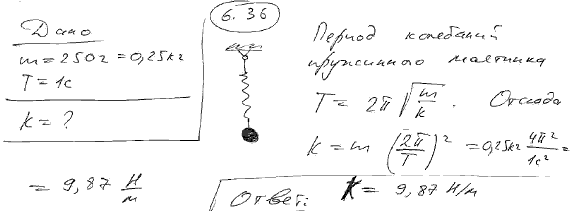 6.36
Дано
m = 250г = 0,25кг
T = 1с
k = ?
Период колебаний
пружинного маятника
T = 2π √(m/k). Отсюда
k = m (2π/T)² = 0,25кг 4π²/1с² =
= 9,87 Н/м
Ответ: k = 9,87 Н/м